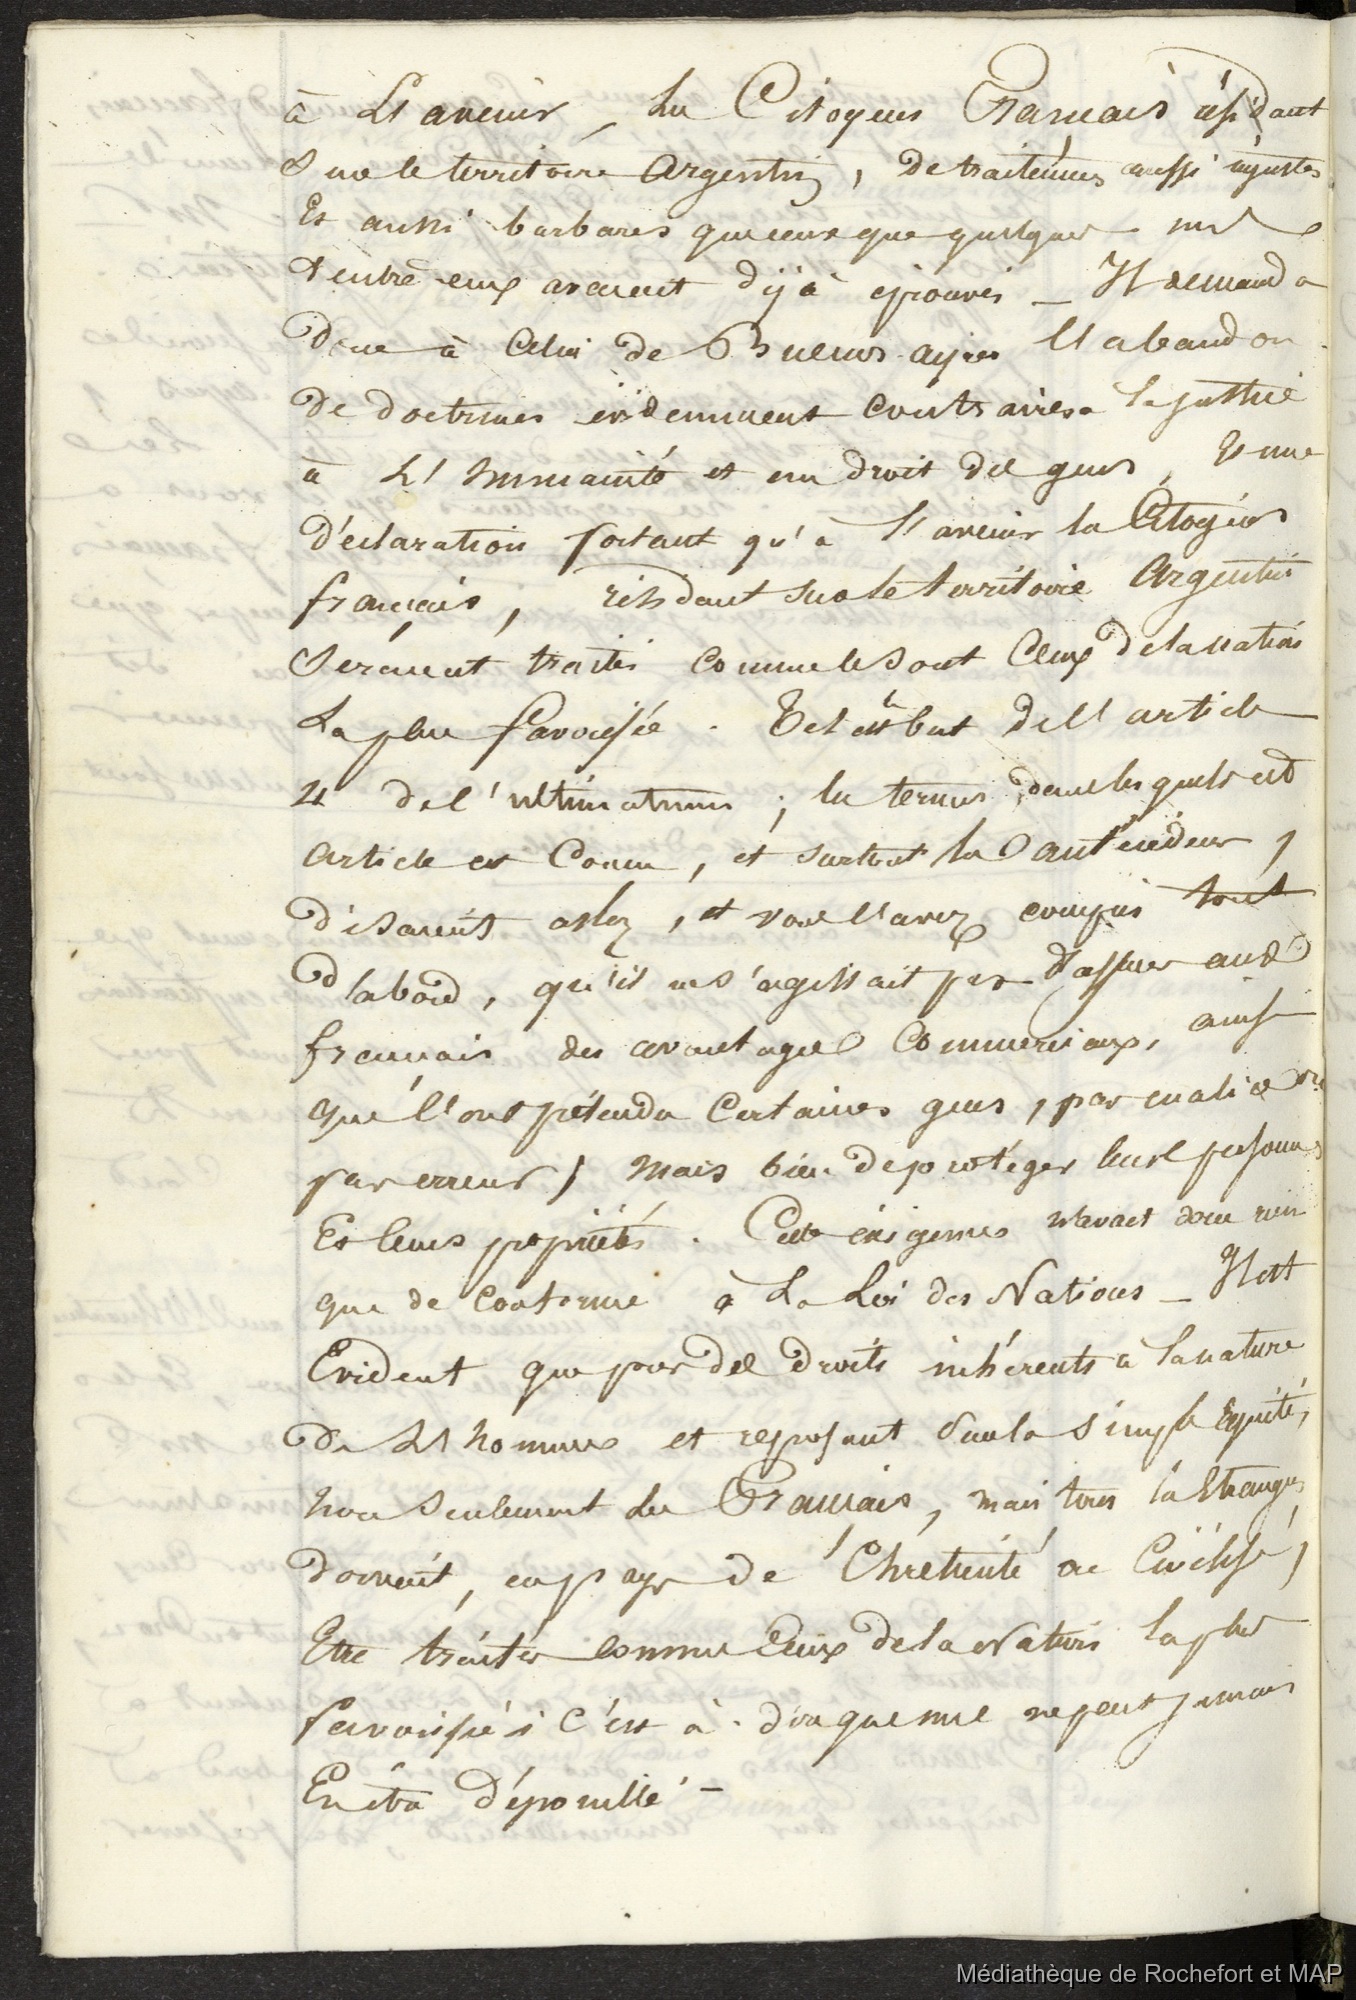 à L'avenir, les Citoyens Français résidant
Sur le territoire Argentin, de traitemens aussi injustes
Et aussi barbares que ceux que quelques uns
d'entre eux avaient déjà éprouvés _ Il demanda
donc à Celui de Buenos-ayres l'abandon
de doctrines évidemment Contraires à la justice
à L'humanité et au droit des gens, Et une
déclaration portant qu'à l'avenir les Citoyens
français, résidant sur le territoire Argentin
Seraient traités comme le sont Ceux de la nation
La plus favorisée. Tel est le but de l'article
4 de l'ultimatum; les termes dans lesquels cet
article est Conçu, et surtout les antécédens,
disaient assez, et vous l'avez compris tout
d'abord, qu'il ne s'agissait pas d'assurer aux
français des avantages Commerciaux, ainsi
que l'ont prétendu Certaines gens, par malice ou
par erreur, Mais bien de protéger leurs personnes
Et leurs propriétés. Cette éxigence n'avait donc rien
que de conforme à La Loi des Nations _ Il est
Evident que par des droits inhérents à la nature
de L'homme et reposant sur la simple Equité,
non seulement les Français, mais tous les Etrangers
doivent, en pays de Chretienté et Civilisé,
Etre traités comme Ceux de la Nation la plus
favorisée; C'est à dire que nul ne peut jamais
En être dépouillé _
Médiathèque de Rochefort et MAP